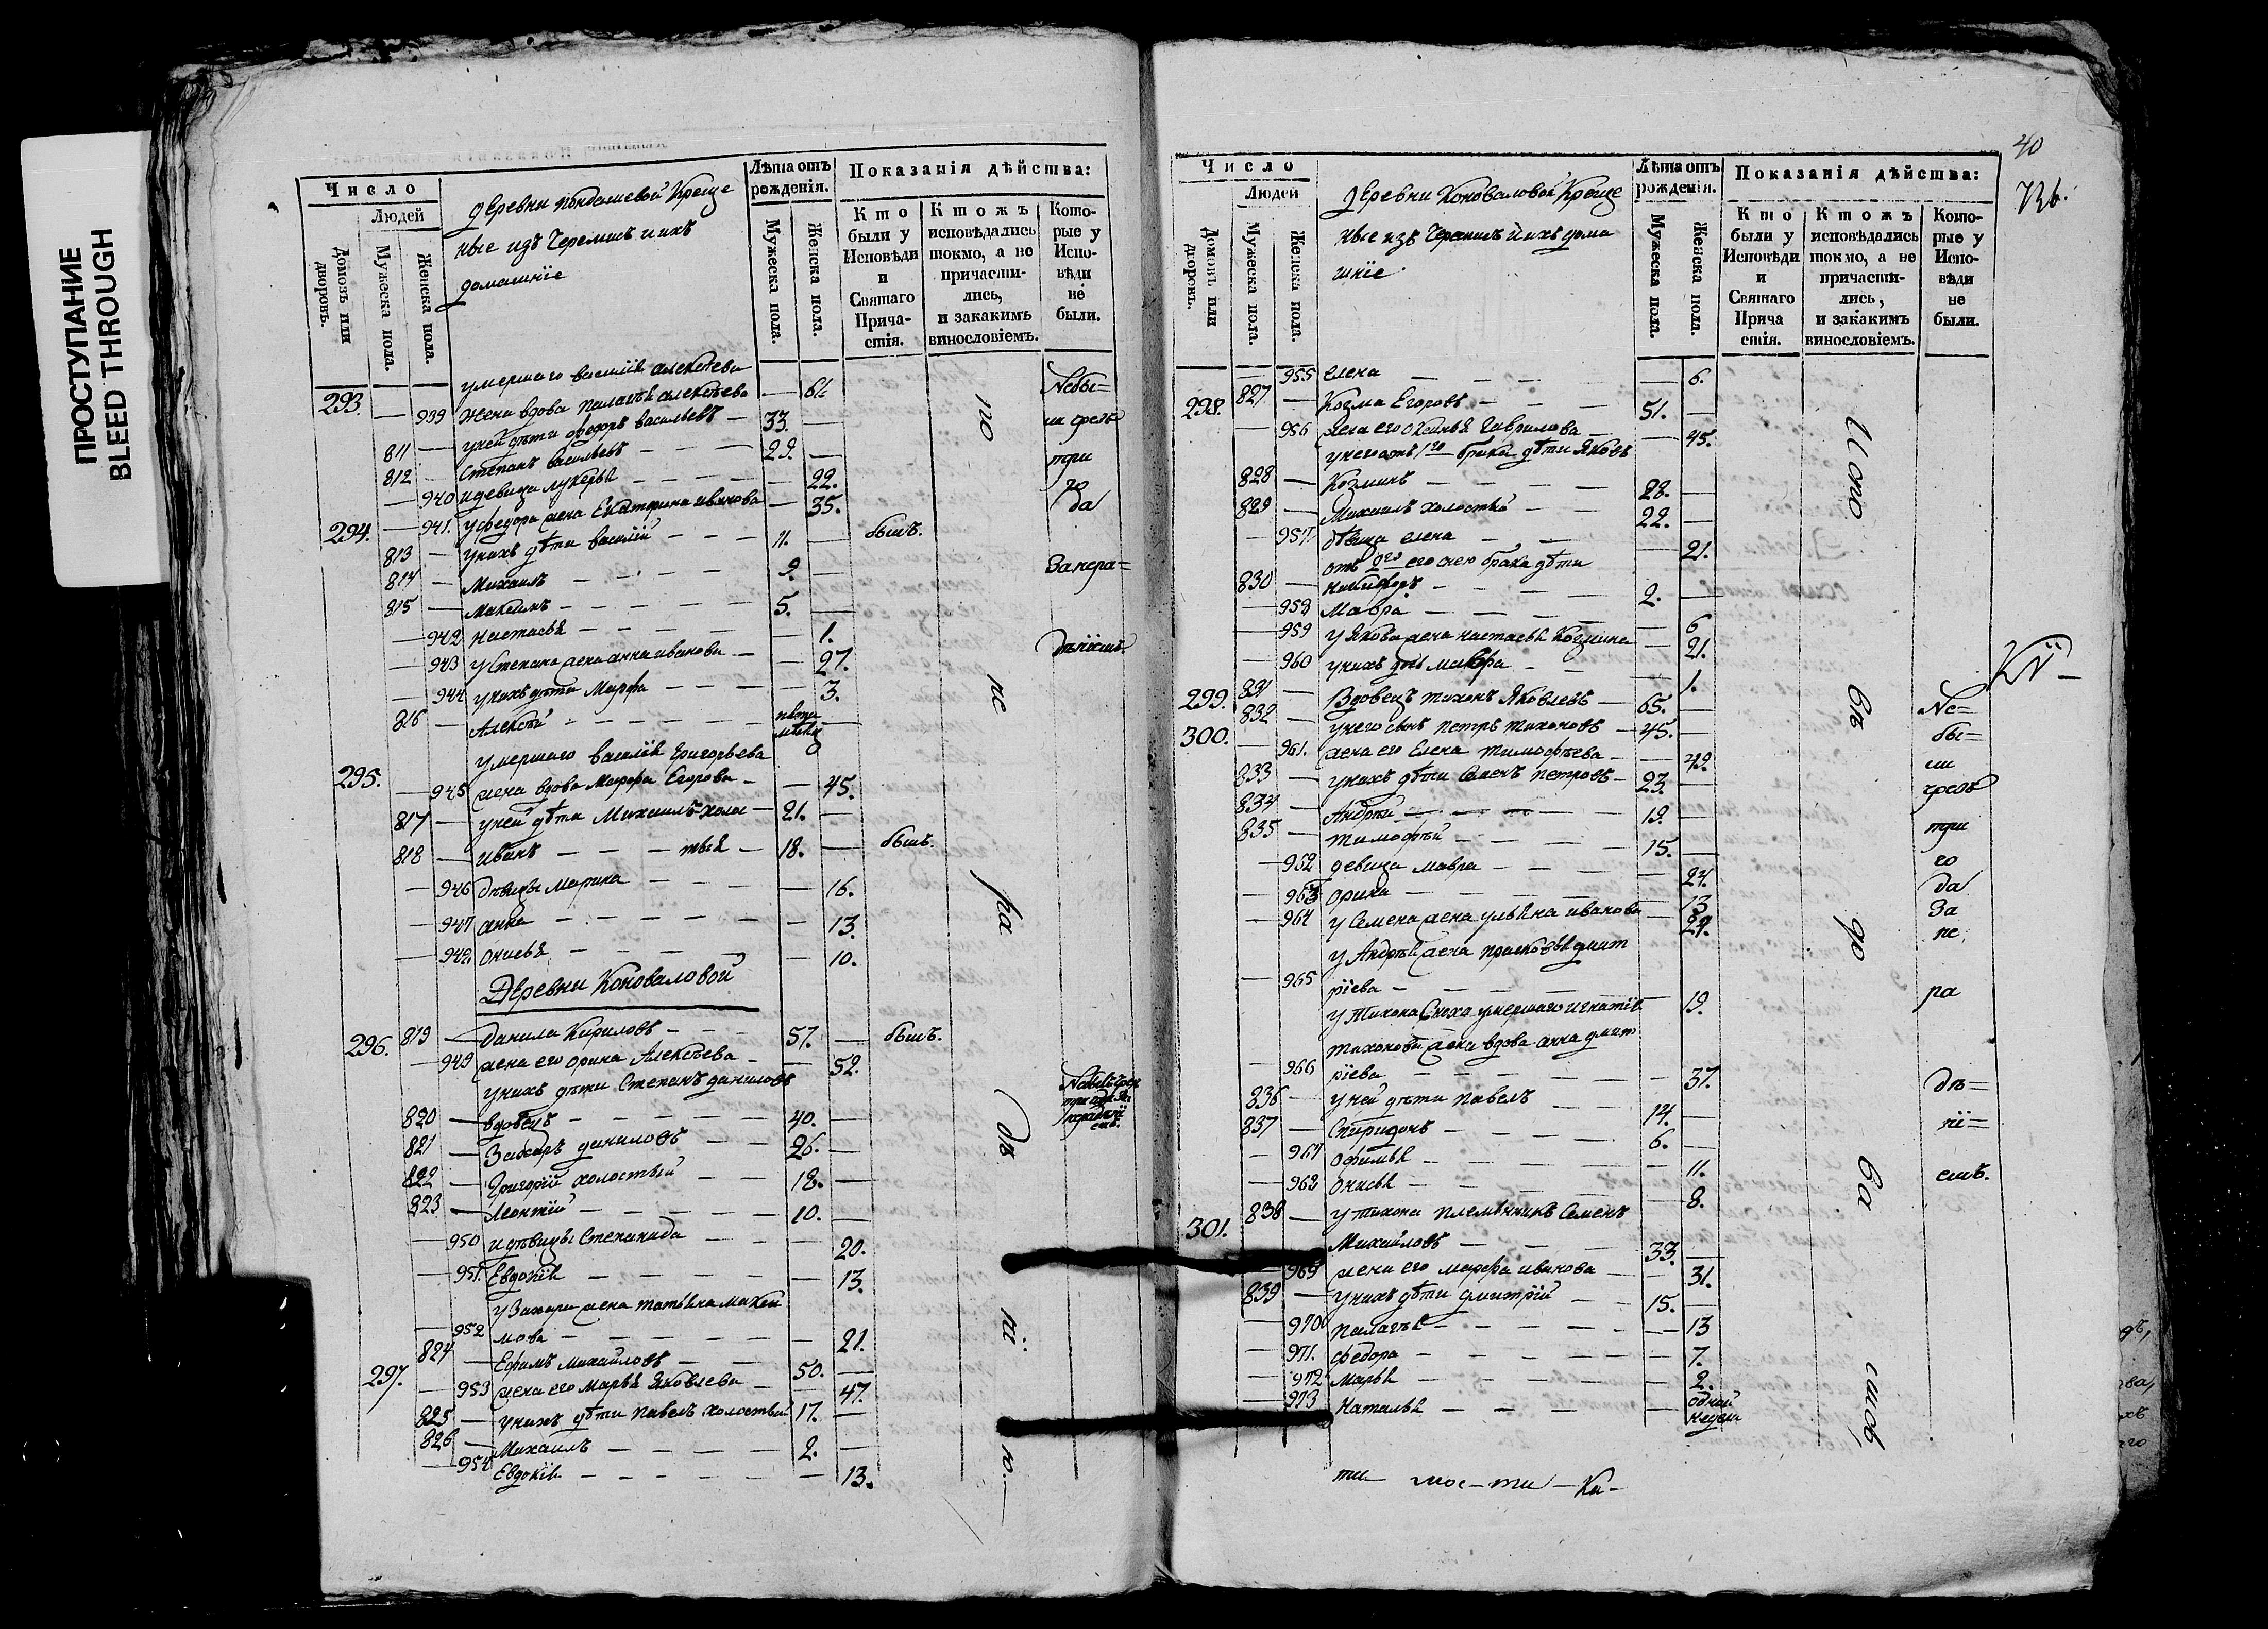 ПРОСТУПАНИЕ
BLEED THROUGH
Число
Людей
Домовъ или дворовъ.
Мужеска пола.
Женска пола.
деревни Кондашевой Креще
ные изъ Черемисъ и ихъ
домашнїе
Лѣта отъ рожденія.
Мужеска пола.
Женска пола.
Показанія дѣйства:
Кто были у Исповѣди и Святаго Прича-стія.
Ктожъ исповѣдались токмо, а не причасти-лись, и закакимъ винословіемъ.
Кото-рые у Испо-вѣди не были.
умершаго василїя алексѣева
293. — 939 жена вдова палагѣя алексѣева — 61
811 — у ней дѣти федоръ васильевъ — 33. —
812 — Степанъ васильевъ — 29. —
— 940 и девица лукерья — 22.
294. — 941. у федора жена Екатерина иванова — 35.
813 — у нихъ дѣти василїй — 11. — былъ.
814 — Михаилъ — 9. —
815 — Максимъ — 5. —
— 942 настасья — 1.
— 943 у Степана жена анна иванова — 27.
— 944 у нихъ дѣти Марфа — 3.
816 — Алексѣй —
умершаго василїя Григорьева
295. — 945 жена вдова Марфа Егорова — 45.
817 — у ней дѣти Михаилъ холос — 21. —
818 — иванъ — тыя — 18. — былъ.
— 946 дѣвицы Марина — 16.
— 947 анна — 13.
— 948 онисья — 10.
Небы=
ли чрезъ
три
го
да
Занера=
дѣнїемъ.
по
не
ра
дѣ
нї
ю.
Деревни Коноваловой
296. 819 — данила Кириловъ — 57. — былъ.
— 949 жена его орина Алексѣева — 52.
у нихъ дѣти Степанъ даниловъ
820 — вдовецъ — 40. —
821 — Захаръ даниловъ — 26. —
822 — Григорїй холостый — 18. —
823 — Леонтїй — 10. —
— 950 и дѣвицы Степанида — 20.
— 951. Евдокїя — 13.
у Захара жена татьяна макси
— 952 мова — 21.
297. 824 — Ефимъ михайловъ — 50. —
— 953 жена его Марья Яковлева — 47.
825 — у нихъ дѣти павелъ холостый 17. —
826 — Михаилъ — 2. —
— 954 Евдокїя — 13.
40
Число
Людей
Домовъ или дворовъ.
Мужеска пола.
Женска пола.
деревни Коноваловой Креще
ные изъ Черемисъ и ихъ дома
шнїе
Лѣта отъ рожденія.
Мужеска пола.
Женска пола.
Показанія дѣйства:
Кто были у Исповѣди и Святаго Прича стія.
Ктожъ исповѣдались токмо, а не причасти-лись, и закакимъ винословіемъ.
Кото-рые у Испо-вѣди не были.
— 955 елена — 6.
298. 827 — Козма Егоровъ — 51. —
— 956 жена его Гаврилова — 45.
у него отъ 1го брака дѣти Яковъ
828 — Козминъ — 28. —
829 — Михаилъ холостый — 22. —
— 957 дѣвица елена — 21.
отъ 2го его снею брака дѣти
830 — никифоръ — 2. —
— 958 Мавра — 6
— 959 у Якова жена настасья Козмина — 21.
— 960 у нихъ дочь мавра — 1.
299. 831 — Вдовецъ тихонъ Яковлевъ — 65. —
300. 832 — у него сынъ петръ тихоновъ — 45. —
— 961. жена его Елена тимофѣева — 49.
833 — у нихъ дѣти Семенъ петровъ — 23. —
834 — Андрей — 19. —
835 — тимофѣй — 15. —
— 962 девица мавра — 24.
— 963 орина — 13
— 964 у Семена жена ульяна иванова — 24.
у Андрѣя жена прасковья дмит
— 965 рїева — 19.
у Тихона Сноха умершаго игнатїя
тихонова жена вдова анна дмит
— 966 рїева — 37.
836 — у ней дѣти павелъ — 14. —
837 — Спиридонъ — 6. —
— 967 офимья — 11.
— 968 онисья — 8.
301. 838 — у тихона племянникъ Семенъ
Михайловъ — 33. —
— 969 жена его марфа иванова — 31.
839 — у нихъ дѣти дмитрїй — 15. —
— 970 палагѣя — 13
— 971. федора — 7.
— 972 Марья — 2.
— 973 Наталья — одной недели
Не=
бы=
ли
чрезъ
три
го
да
За
не
ра
дѣ=
нї=
емъ.
ти — мос — ти — Ки —